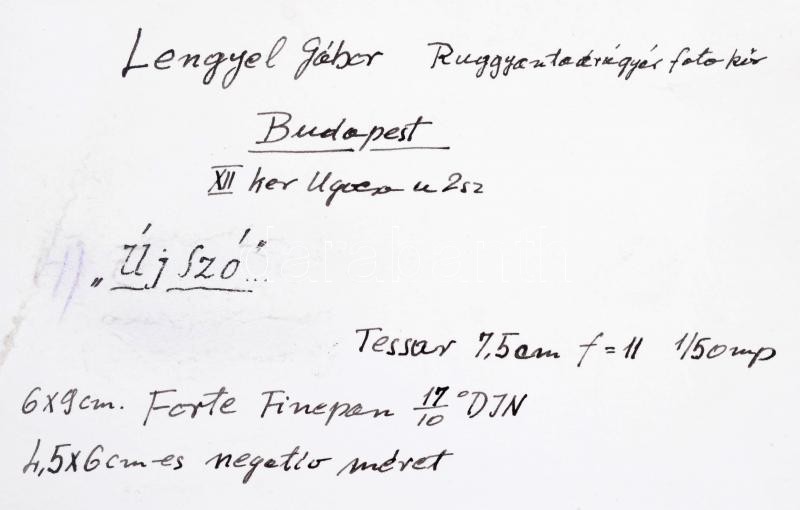 Lengyel Gábor Ruggyantaárúgyár foto kör
Budapest
XII ker Ugocsa u 2sz
„Új Szó”...
Tessar 7,5cm f=11 1/50mp
6x9cm. Forte Finepan 17/10 °DIN
4,5x6cm-es negatív méret